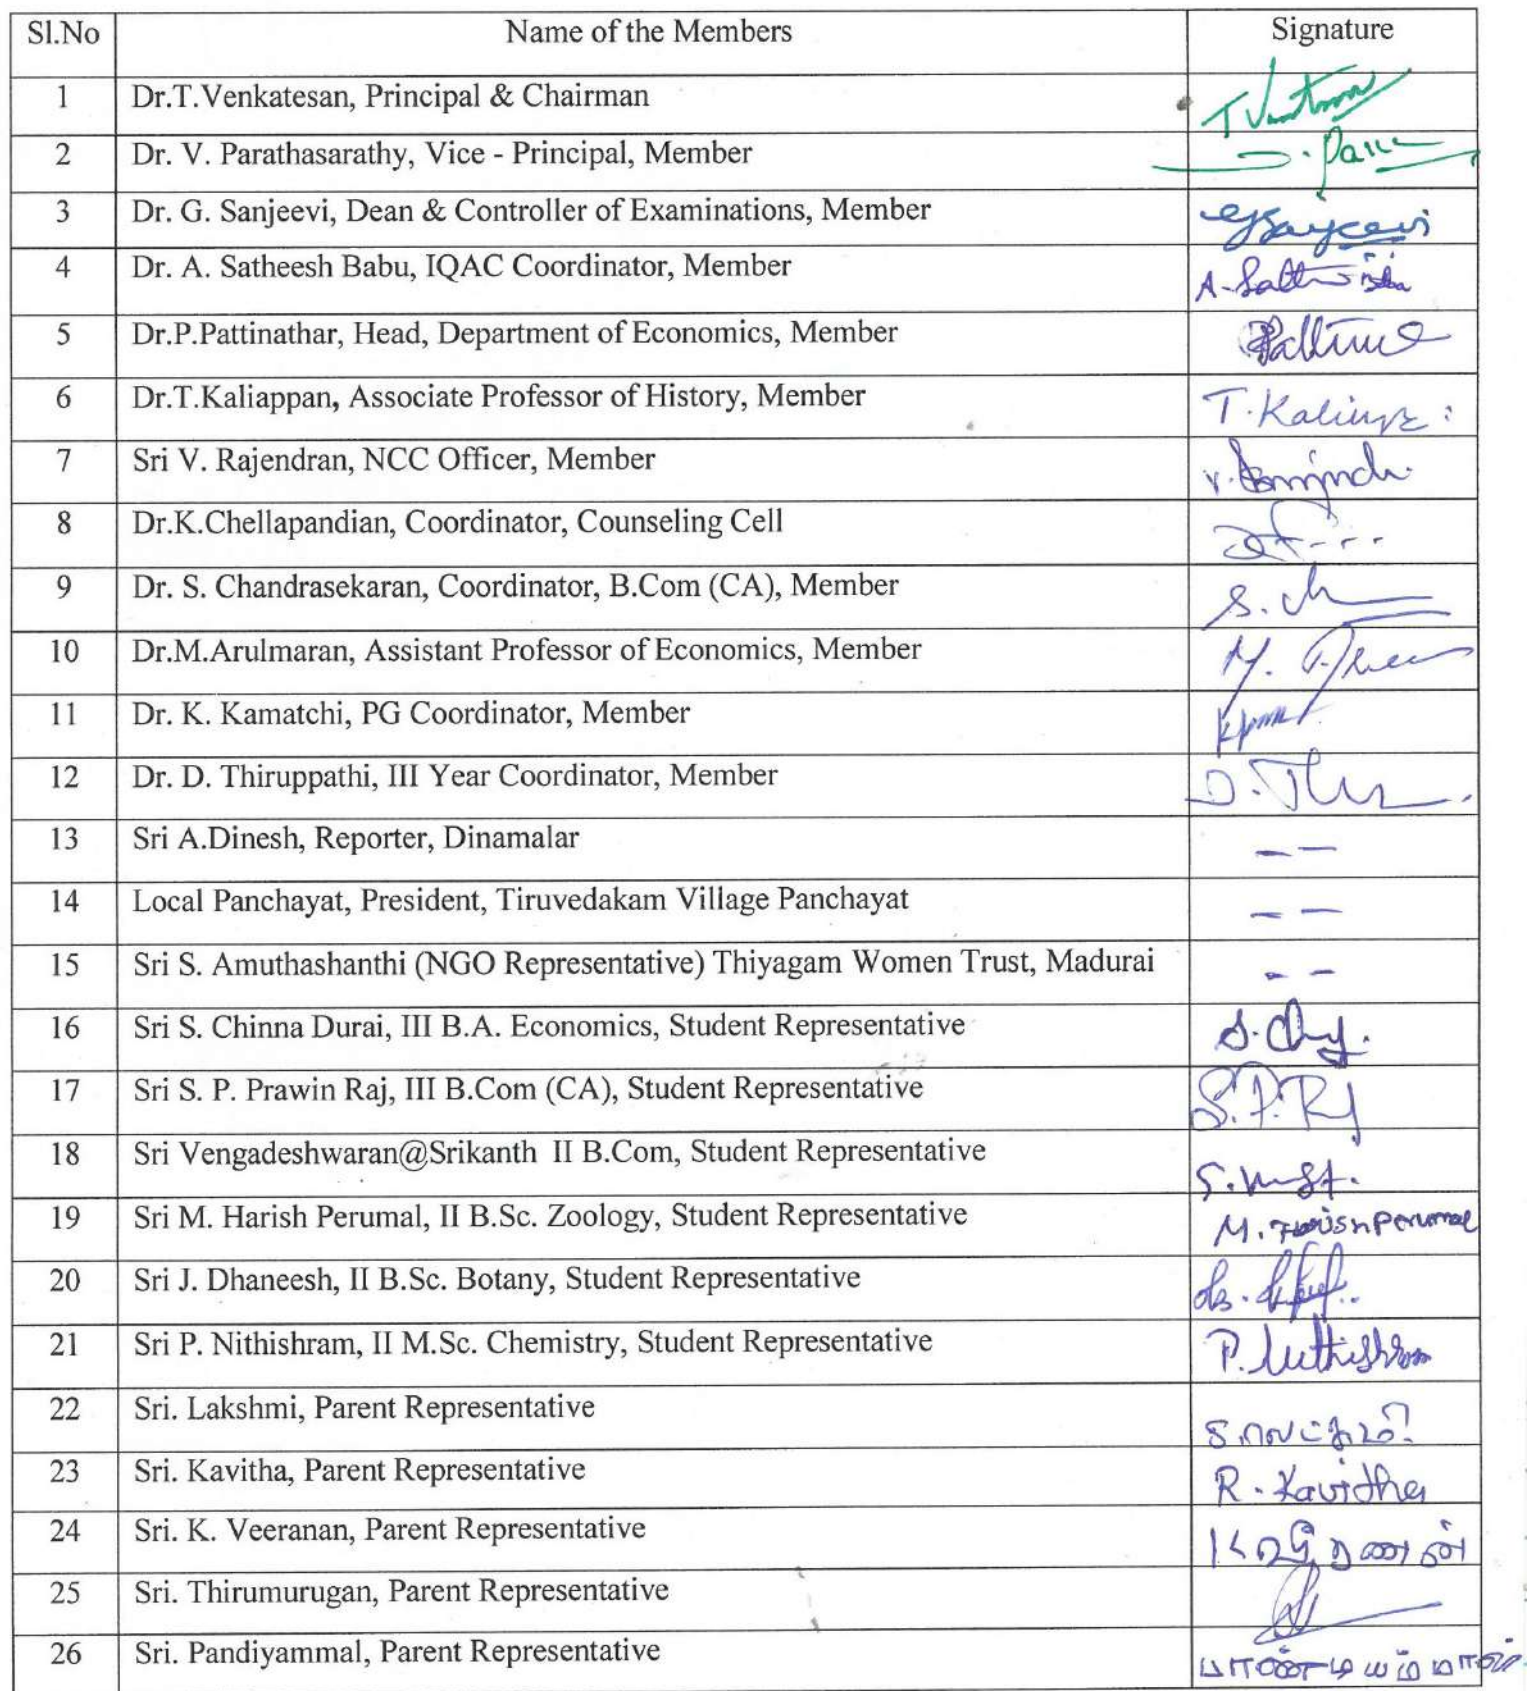 Sl.No Name of the Members Signature
1 Dr.T.Venkatesan, Principal & Chairman
2 Dr. V. Parathasarathy, Vice - Principal, Member
3 Dr. G. Sanjeevi, Dean & Controller of Examinations, Member
4 Dr. A. Satheesh Babu, IQAC Coordinator, Member
5 Dr.P.Pattinathar, Head, Department of Economics, Member
6 Dr.T.Kaliappan, Associate Professor of History, Member
7 Sri V. Rajendran, NCC Officer, Member
8 Dr.K.Chellapandian, Coordinator, Counseling Cell
9 Dr. S. Chandrasekaran, Coordinator, B.Com (CA), Member
10 Dr.M.Arulmaran, Assistant Professor of Economics, Member
11 Dr. K. Kamatchi, PG Coordinator, Member
12 Dr. D. Thiruppathi, III Year Coordinator, Member
13 Sri A.Dinesh, Reporter, Dinamalar - -
14 Local Panchayat, President, Tiruvedakam Village Panchayat - -
15 Sri S. Amuthashanthi (NGO Representative) Thiyagam Women Trust, Madurai - -
16 Sri S. Chinna Durai, III B.A. Economics, Student Representative
17 Sri S. P. Prawin Raj, III B.Com (CA), Student Representative
18 Sri Vengadeshwaran@Srikanth II B.Com, Student Representative
19 Sri M. Harish Perumal, II B.Sc. Zoology, Student Representative M. Harish Perumal
20 Sri J. Dhaneesh, II B.Sc. Botany, Student Representative
21 Sri P. Nithishram, II M.Sc. Chemistry, Student Representative P. Nithishram
22 Sri. Lakshmi, Parent Representative
23 Sri. Kavitha, Parent Representative R. Kavitha
24 Sri. K. Veeranan, Parent Representative
25 Sri. Thirumurugan, Parent Representative
26 Sri. Pandiyammal, Parent Representative பாண்டியம்மாள்